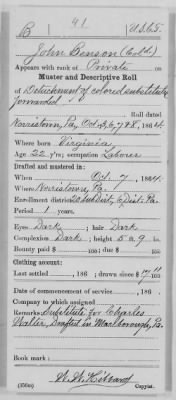 B | 41 | U.S.C.T.
John Benson (Cold.)
Appears with rank of Private
Muster and Descriptive Roll
of Detachment of colored substitutes
forwarded
Roll dated
Norristown, Pa, Oct. 3, 6, 7 & 8, 1864
Where born Virginia
Age 22 y'rs; occupation Laborer
Drafted and mustered in:
When Oct. 7, 1864
Where Norristown, Pa.
Enrollment district 6 Dist. Pa.
Period 1 years.
Eyes Dark; hair Dark
Complexion Dark; height 5 ft. 9 in.
Bounty paid $ 100; due $ 100
Clothing account:
Last settled , 186 ; drawn since $ 100
Date of commencement of service , 186 .
Company to which assigned
Remarks: Substitute for Charles
Walter, Drafted in Marlborough, Pa.
Book mark:
(356m) Copyist.